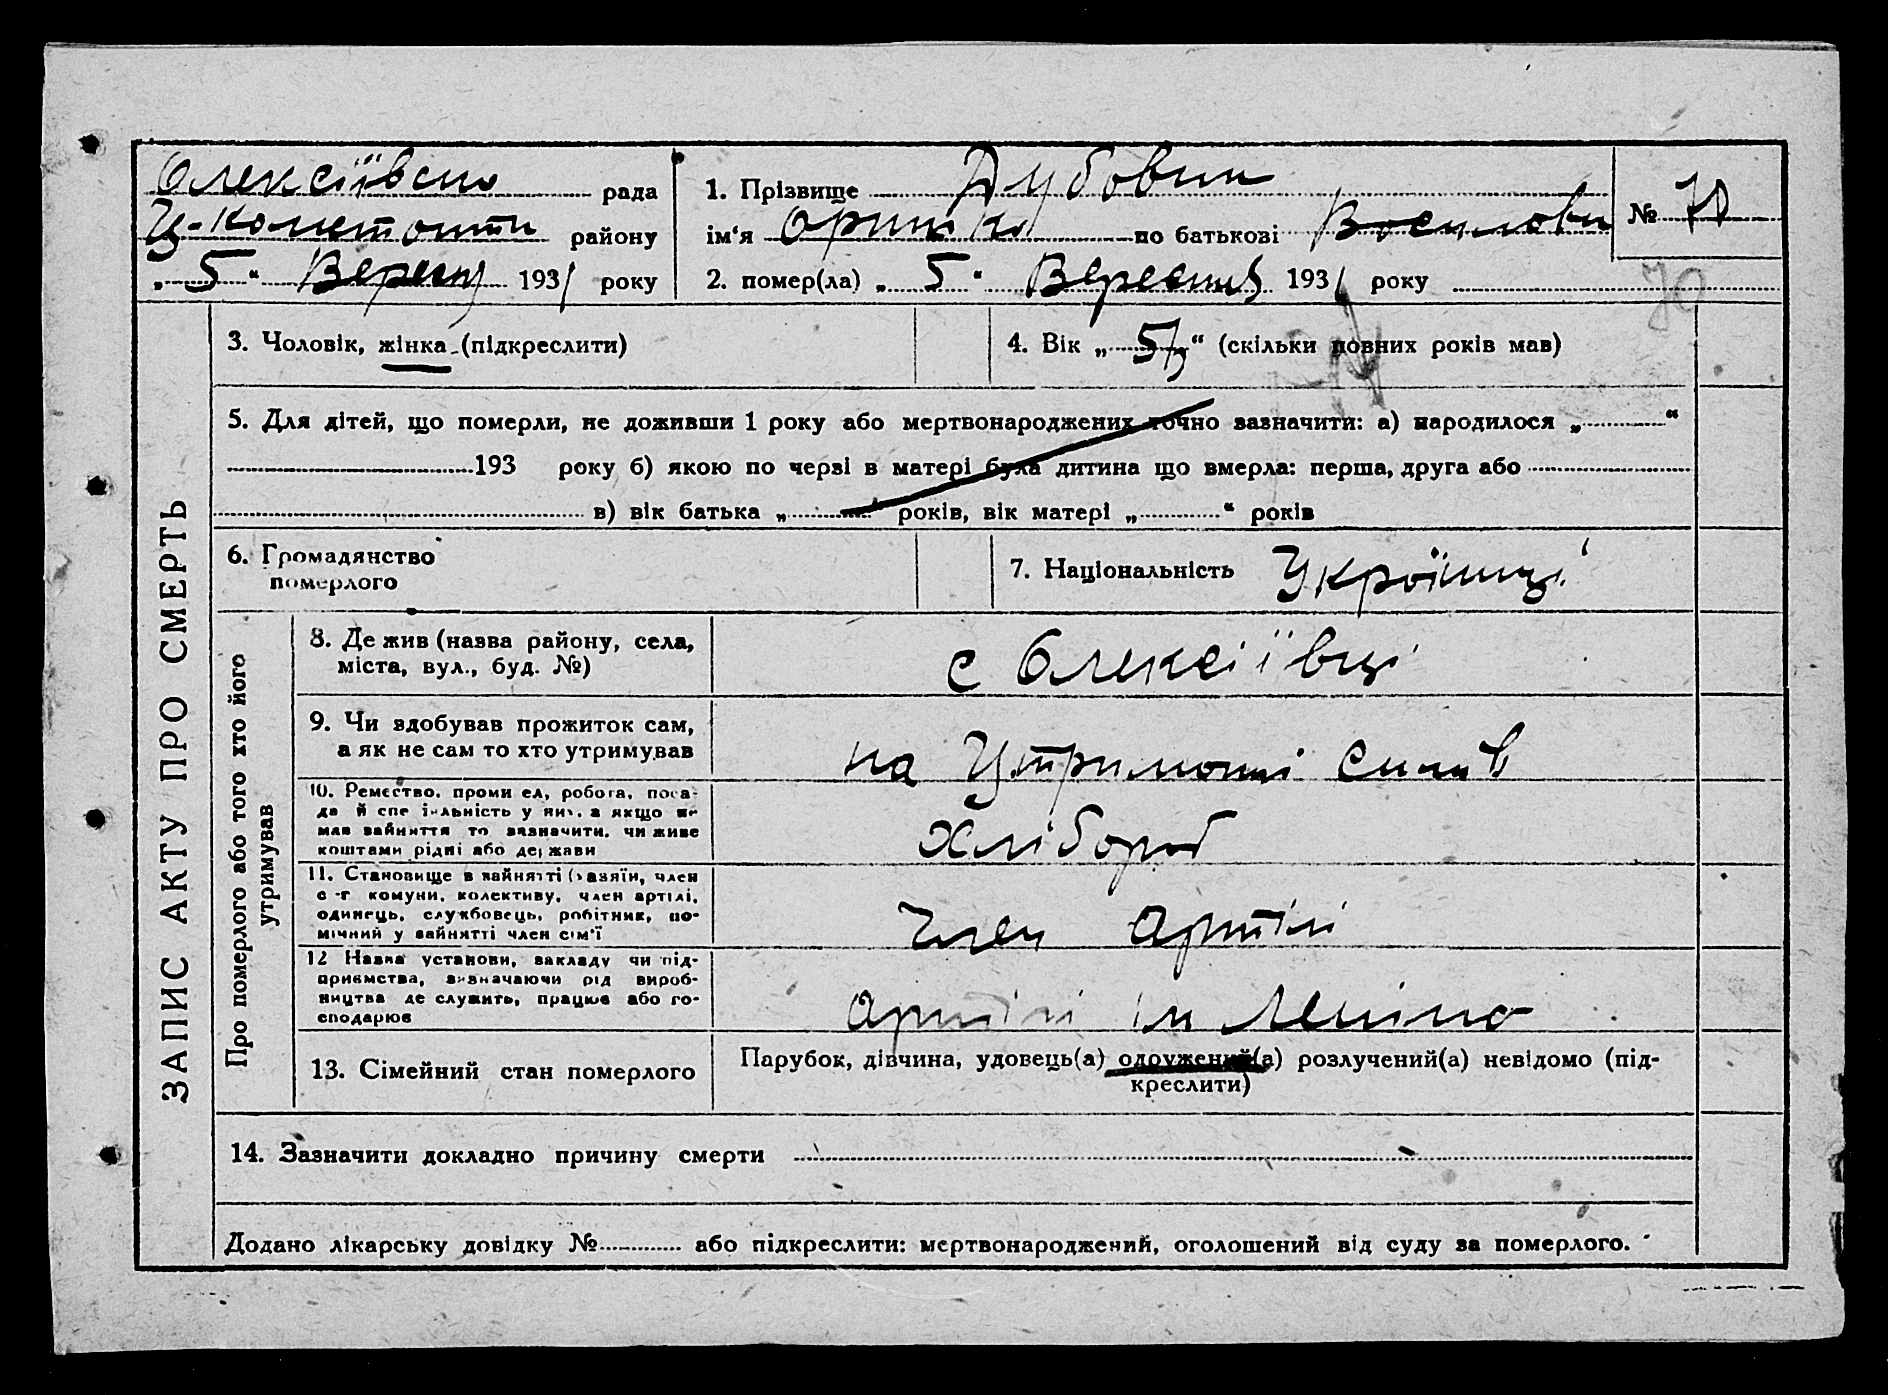 Олексіївська рада
району
„ 5 “ Вересня 1931 року
1. Прізвище Дубовик
ім'я Оришка по батькові Василова
2. помер(ла) „ 5 “ Вересня 1931 року
№ 70
70
3. Чоловік, жінка (підкреслити)
4. Вік „ “ (скільки повних років мав)
5. Для дітей, що померли, не доживши 1 року або мертвонароджених точно зазначити: а) народилося „ “
193 року б) якою по черзі в матері була дитина що вмерла: перша, друга або
в) вік батька „ “ років, вік матері „ “ років
6. Громадянство
померлого
7. Національність Україниці
ЗАПИС АКТУ ПРО СМЕРТЬ
Про померлого або того хто його
утримував
8. Де жив (назва району, села,
міста, вул., буд. №)
с Олексіївці
9. Чи здобував прожиток сам,
а як не сам то хто утримував
на Утриманні Синів
10. Ремество, проми ел, робота, поса-
да й спе іяльність у них, а якщо не
мав зайняття то зазначити, чи живе
коштами рідні або держави
Хлібороб
11. Становище в зайнятті (хазяїн, член
с -г комуни, колективу, член артілі,
одинець, службовець, робітник, по-
мічний у зайнятті член сім'ї
Член Артілі
12 Назва установи, закладу чи під-
приємства, визначаючи рід вироб-
ництва де служить, працює або го-
сподарює
Артілі ім Леніна
13. Сімейний стан померлого
Парубок, дівчина, удовець(а) одружений(а) розлучений(а) невідомо (під-
креслити)
14. Зазначити докладно причину смерти
Додано лікарську довідку № або підкреслити: мертвонароджений, оголошений від суду за померлого.